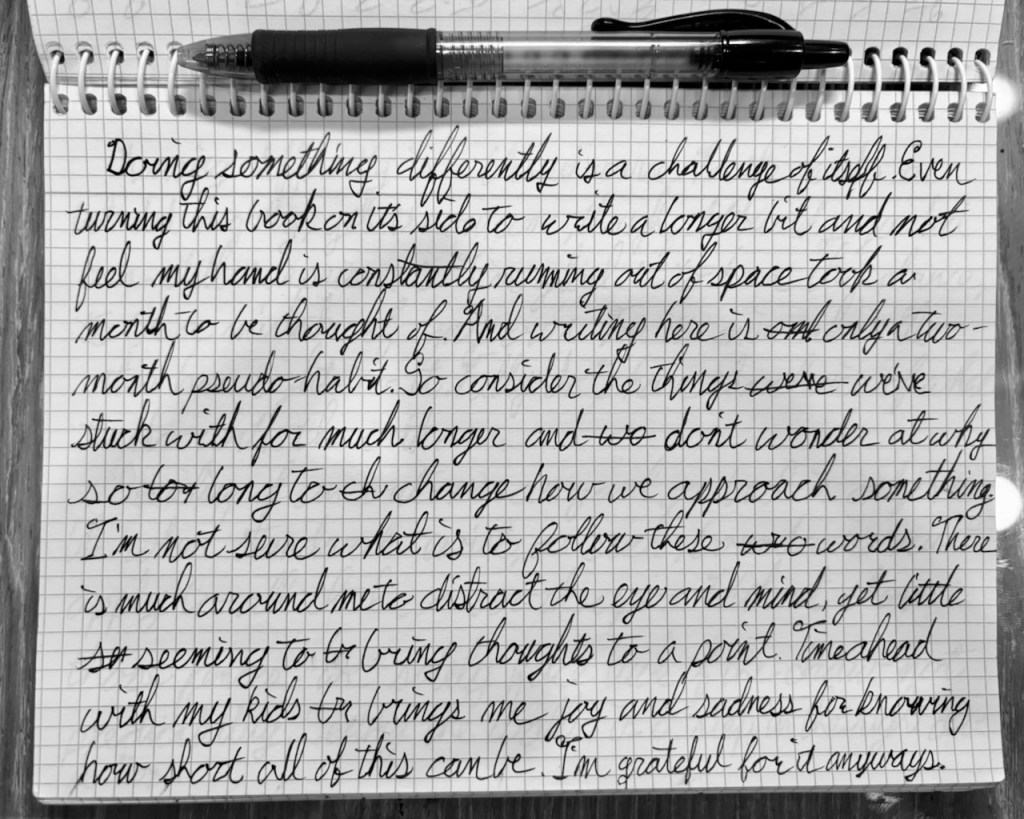 Doing something differently is a challenge of itself. Even
turning this book on it's side to write a longer bit and not
feel my hand is constantly running out of space took a
month to be thought of. And writing here is only a two-
month pseudo-habit. So consider the things were we've
stuck with for much longer and wo don't wonder at why
so long to ch change how we approach something.
I'm not sure what is to follow these wro words. There
is much around me to distract the eye and mind, yet little
so seeming to br bring thoughts to a point. Time ahead
with my kids br brings me joy and sadness for knowing
how short all of this can be. I'm grateful for it anyways.